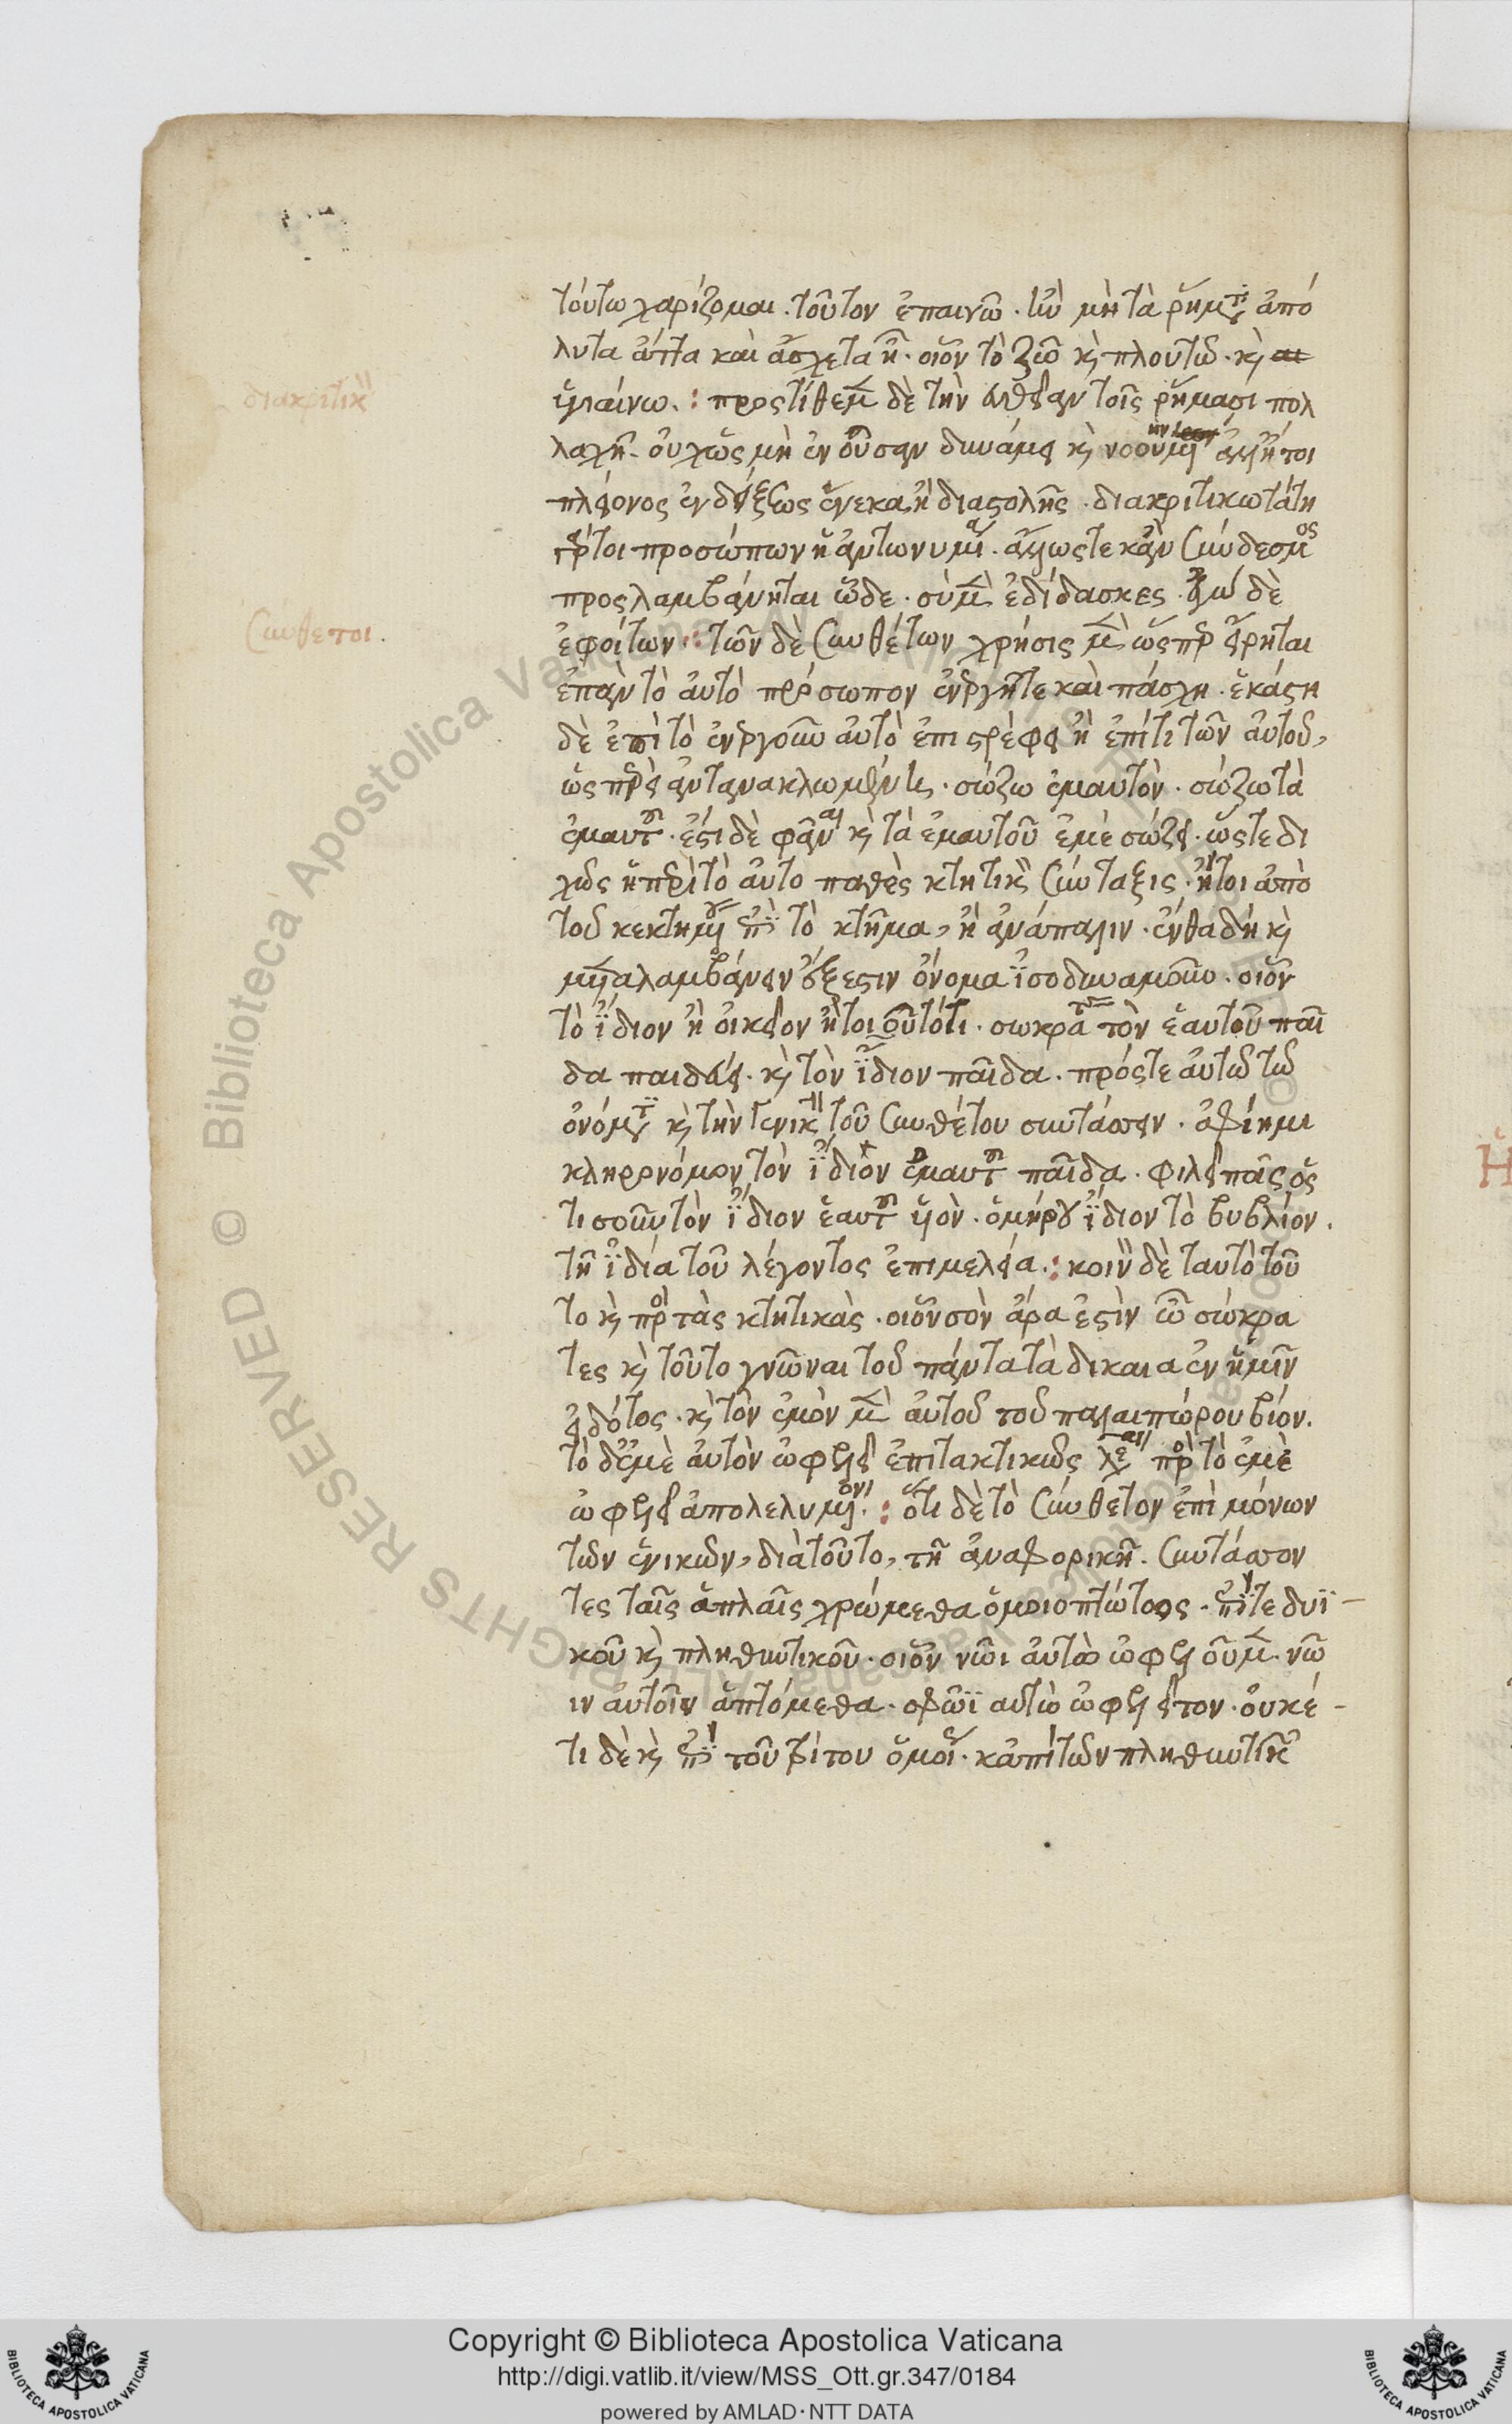 τούτω χαρίζομαι. τοῦτον ἐπαινῶ. ἢν μὴ τὰ ῥήματα ἀπό
λυτα ἄττα καὶ ἄσχετα ᾖ. οἷον τὸ ζῶ κὴ πλουτῶ. κὴ
ὑγιαίνω. : προςτίθεμεν δὲ τὴν εὐθεῖαν τοῖς ῥήμασι πολ
διακριτικὴ
λαχῆ. οὐχ ὡς μὴ ἐνοῦσαν δυνάμει κὴ νοουμένην ἀλλ' ἤτοι
πλείονος ἐνδείξεως ἕνεκα, ἢ διαστολῆς. διακριτικωτάτη
γάρ τοι προσώπων ἡ ἀντωνυμία. ἄλλωςτε κἂν σύνδεσμος
προςλαμβάνηται ὧδε. σὺ μὲν ἐδίδασκες. ἐγὼ δὲ
ἐφοίτων. : τῶν δὲ συνθέτων χρῆσις μὲν ὥςπερ εἴρηται
σύνθετοι.
ἐπὰν τὸ αὐτὸ πρόσωπον ἐνεργῆτε καὶ πάσχη. ἑκάστη
δὲ ἐπὶ τὸ ἐνεργοῦν αὐτὸ ἐπιστρέφει ἢ ἐπί τι τῶν αὐτοῦ,
ὥςπερεὶ ἀντανακλωμένη. σώζω ἐμαυτὸν. σώζω τὰ
ἐμαυτοῦ. ἔστι δὲ φάναι κὴ τὰ ἐμαυτοῦ ἐμὲ σώζει. ὥςτε δι
χῶς ἡ περὶ τὸ αὐτοπαθὲς κτητικὴ σύνταξις. ἤτοι ἀπὸ
τοῦ κεκτημένου ἐπὶ τὸ κτῆμα, ἢ ἀνάπαλιν. ἔνθα δὴ κὴ
μεταλαμβάνειν ἔξεστιν ὄνομα ἰσοδυναμοῦν. οἷον
τὸ ἴδιον ἢ οἰκεῖον ἤτοι οὕτοτι. σωκράτης τὸν ἑαυτοῦ παῖ
δα παιδεύει. κὴ τὸν ἴδιον παῖδα. πρόςτε αὐτῶ τῶ
ὀνόματι κὴ τὴν γενικὴν τοῦ συνθέτου συντάσσειν. ἀφίημι
κληρονόμον τὸν ἴδιον ἐμαυτοῦ παῖδα. φιλεῖ πᾶς ὅς
τις οὖν τὸν ἴδιον ἑαυτοῦ υἱὸν. ὁμήρου ἴδιον τὸ βυβλίον.
τῆ ἰδία τοῦ λέγοντος ἐπιμελεία. : κοινὸν δὲ ταυτὸ τοῦ
το κὴ πρὸς τὰς κτητικὰς. οἷον σὸν ἄρα ἐστὶν ὦ σώκρα
τες κὴ τοῦτο γνῶναι τοῦ πάντα τὰ δίκαια ἐν ἡμῖν
εἰδότος. κὴ τὸν ἐμὸν μὲν αὐτοῦ τοῦ ταλαιπώρου βίον.
τὸ δ' ἐμὲ αὐτὸν ὠφελεῖ ἐπιτακτικῶς λέγεται πρὸς τὸ ἐμὲ
ὠφελεῖ ἀπολελυμένον. : ὅτι δὲ τὸ σύνθετον ἐπὶ μόνων
τῶν ἑνικῶν, διὰ τοῦτο, τῆ ἀναφορικῆ. συντάσσον
τες ταῖς ἁπλαῖς χρώμεθα ὁμοιοπτώτοος. ἐπί τε δυϊ
κοῦ κὴ πληθυντικοῦ. οἷον νῶι αὐτὼ ὠφελοῦμεν. νῶ
ιν αὐτοῖν ἁπτόμεθα. σφῶϊ αὐτὼ ὠφελεῖτον. οὐκέ
τι δὲ κὴ ἐπὶ τοῦ τρίτου ὁμοίως. κἀπὶ τῶν πληθυντικῶν
Copyright © Biblioteca Apostolica Vaticana
http://digi.vatlib.it/view/MSS_Ott.gr.347/0184
powered by AMLAD·NTT DATA